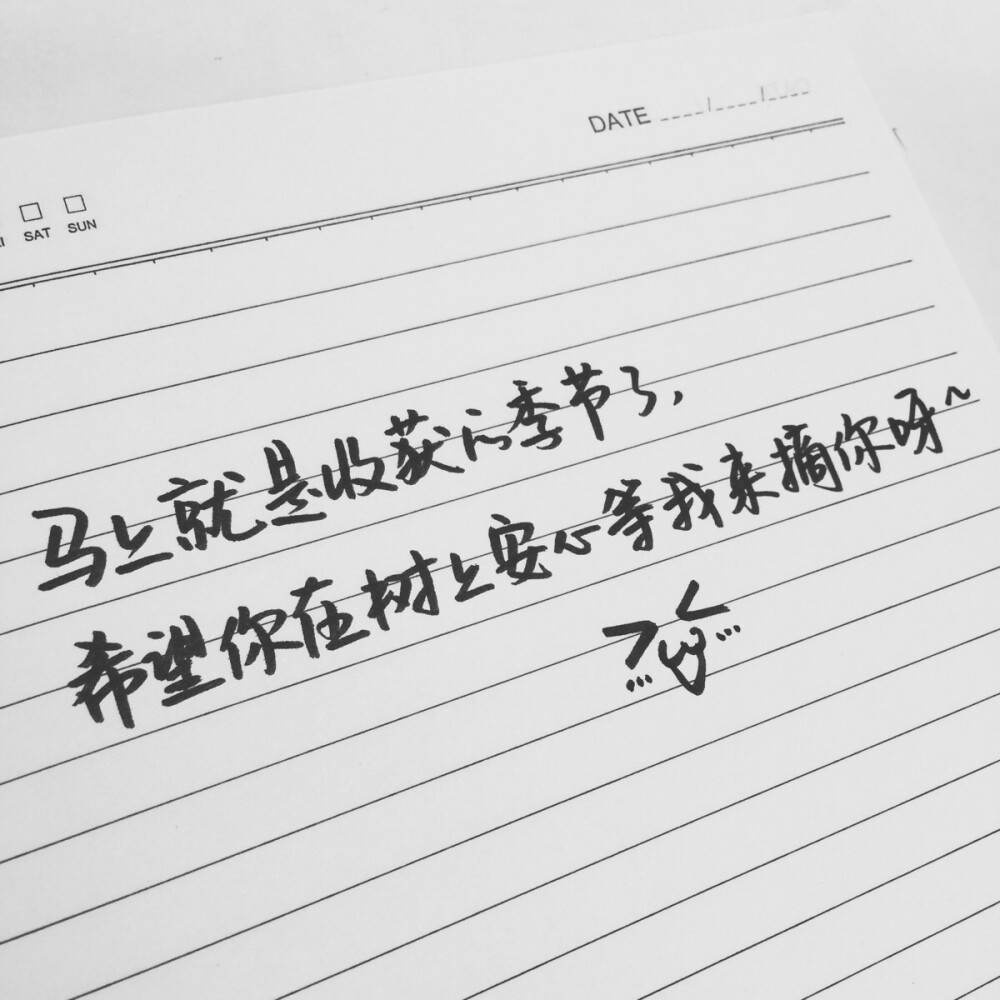 DATE ____/____/____
SAT SUN
马上就是收获的季节了,
希望你在树上安心等我来摘你呀~